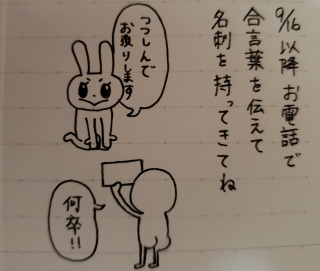 9/16以降 お電話で
合言葉を伝えて
名刺を持ってきてね
つつしんで
お渡りします
何卒!!